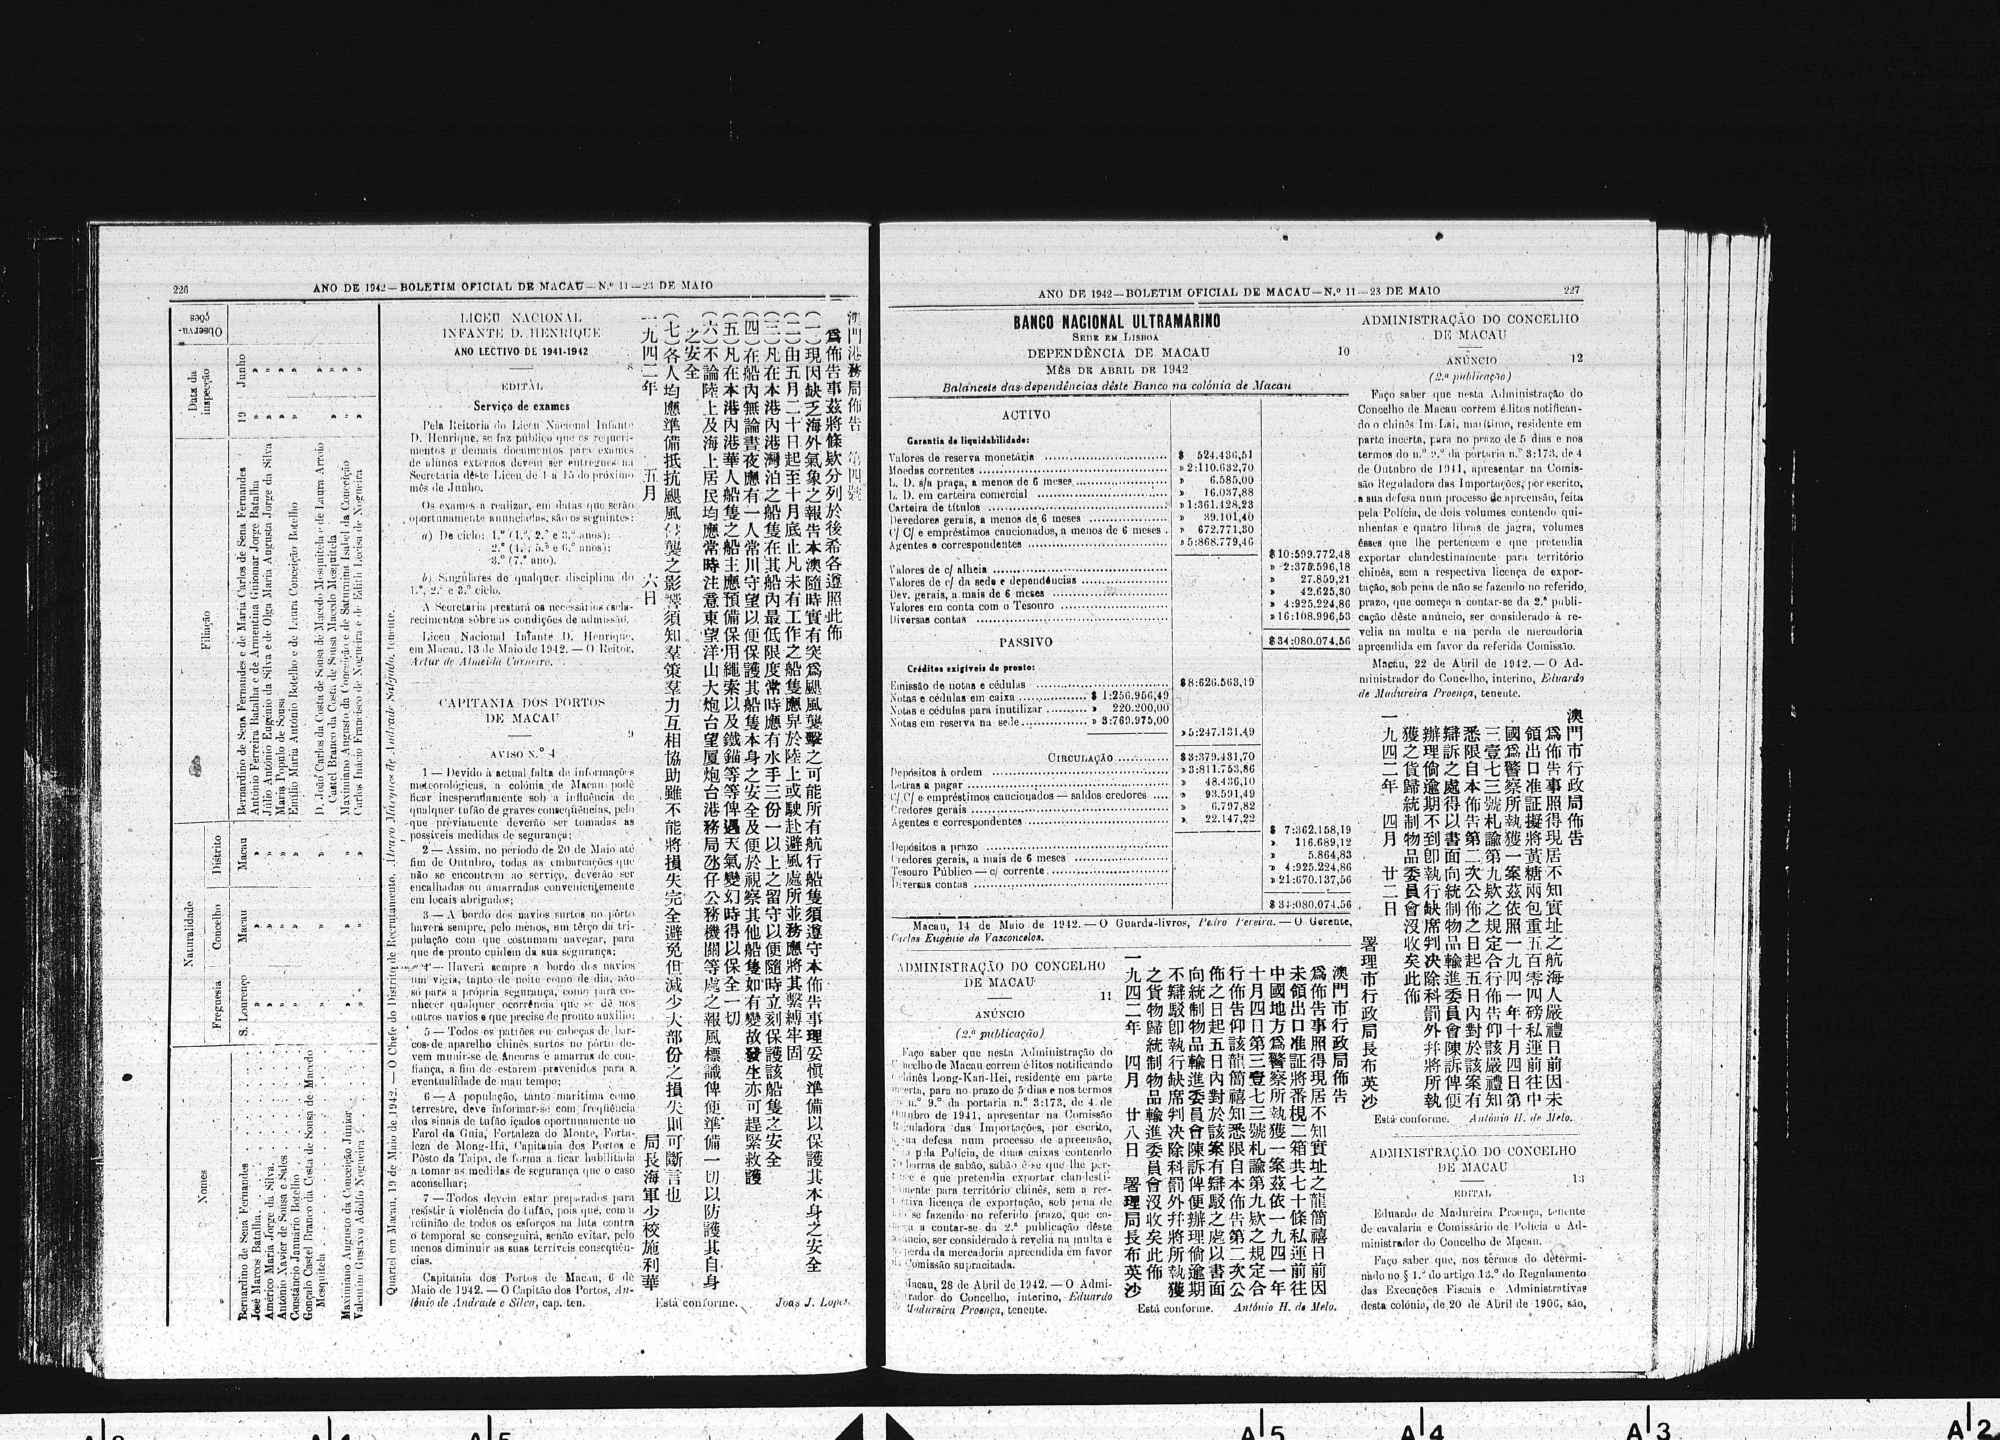 226
ANO DE 1942—BOLETIM OFICIAL DE MACAU—N.º 11—23 DE MAIO
Observa-
ções
Data da
inspecção
Junho
19
Filiação
Bernardino de Sena Fernandes e de Maria Carlos de Sena Fernandes
António Ferreira Batalha e de Armentina Guiomar Jorge Batalha
Júlio António Eugénio da Silva e de Olga Maria Augusta Jorge da Silva
Maria Populo de Sousa
Emílio Maria António Botelho e de Laura Conceição Botelho
D. João Carlos da Costa de Sousa de Macedo Mesquitela e de Laura Arroio
Castel Branco da Costa de Sousa Macedo Mesquitela
Maximiano Augusto da Conceição e de Saturnina Isabel da Conceição
Carlos Inácio Francisco de Nogueira e de Edith Lecisa de Nogueira
Naturalidade
Distrito
Macau
Concelho
Macau
Freguesia
S. Lourenço
Nomes
Bernardino de Sena Fernandes
José Marcos Batalha
Américo Maria Jorge da Silva
António Xavier de Sousa e Sales
Constâncio Januário Botelho
Gonçalo Castel Branco da Costa de Sousa de Macedo
Mesquitela
Maximiano Augusto da Conceição Júnior
Valentim Gustavo Adolfo Nogueira
Quartel em Macau, 19 de Maio de 1942. — O Chefe do Distrito de Recrutamento, Álvaro Marques de Andrade Salgado, tenente.
LICEU NACIONAL
INFANTE D. HENRIQUE
ANO LECTIVO DE 1941-1942
8
EDITAL
Serviço de exames
Pela Reitoria do Liceu Nacional Infante
D. Henrique, se faz público que os requeri-
mentos e demais documentos para exames
de alunos externos devem ser entregues na
Secretaria dêste Liceu de 1 a 15 do próximo
mês de Junho.
Os exames a realizar, em datas que serão
oportunamente anunciadas, são os seguintes:
a) De ciclo: 1.º (1.º, 2.º e 3.º anos);
2.º (4.º, 5.º e 6.º anos);
3.º (7.º ano).
b) Singulares de qualquer disciplina do
1.º, 2.º e 3.º ciclo.
A Secretaria prestará os necessários escla-
recimentos sôbre as condições de admissão.
Liceu Nacional Infante D. Henrique,
em Macau, 13 de Maio de 1942. — O Reitor,
Artur de Almeida Carneiro.
CAPITANIA DOS PORTOS
DE MACAU
9
AVISO N.º 4
1 — Devido à actual falta de informações
meteorológicas, a colónia de Macau pode
ficar inesperadamente sob a influência de
qualquer tufão de graves conseqüências, pelo
que prèviamente deverão ser tomadas as
possíveis medidas de segurança;
2 — Assim, no período de 20 de Maio até
fim de Outubro, todas as embarcações que
não se encontrem ao serviço, deverão ser
encalhadas ou amarradas convenientemente
em locais abrigados;
3 — A bordo dos navios surtos no pôrto
haverá sempre, pelo menos, um têrço da tri-
pulação com que costumam navegar, para
que de pronto cuidem da sua segurança;
4 — Haverá sempre a bordo dos navios
um vigia, tanto de noite como de dia, não
só para a própria segurança, como para co-
nhecer qualquer ocorrência que se dê nos
outros navios e que precise de pronto auxílio;
5 — Todos os patrões ou cabeças de bar-
cos de aparelho chinês surtos no pôrto de-
vem munir-se de âncoras e amarras de con-
fiança, a fim de estarem prevenidos para a
eventualidade de mau tempo;
6 — A população, tanto marítima como
terrestre, deve informar-se com freqüência
dos sinais de tufão içados oportunamente no
Farol da Guia, Fortaleza do Monte, Forta-
leza de Mong-Há, Capitania dos Portos e
Pôsto da Taipa, de forma a ficar habilitada
a tomar as medidas de segurança que o caso
aconselhar;
7 — Todos devem estar preparados para
resistir à violência do tufão, pois que, com a
reünião de todos os esforços na luta contra
o temporal se conseguirá, senão evitar, pelo
menos diminuir as suas terríveis conseqüên-
cias.
Capitania dos Portos de Macau, 6 de
Maio de 1942. — O Capitão dos Portos, An-
tónio de Andrade e Silva, cap. ten.
澳門港務局佈告 第四號
爲佈告事茲將條欵分列於後希各遵照此佈
(一)現因缺乏海外氣象之報告本澳隨時實有突爲颶風襲擊之可能所有航行船隻須遵守本佈告事理妥愼準備以保護其本身之安全
(二)由五月二十日起至十月底止凡未有工作之船隻應舁於陸上或駛赴避風處所並務應將其繫縛牢固
(三)凡在本港內港灣泊之船隻在其船內最低限度常時應有水手三份一以上之留守以便隨時立刻保護該船隻之安全
(四)在船內無論晝夜應有一人常川守望以便保護其船隻本身之安全及便於視察其他船隻如有變故發生亦可趕緊救護
(五)凡在本港內港華人船隻之船主應預備保用繩索以及鐵錨等等俾遇天氣變幻時得以保全一切
(六)不論陸上及海上居民均應常時注意東望洋山大炮台望厦炮台港務局氹仔公務機關等處之報風標識俾便準備一切以防護其自身
之安全
(七)各人均應準備抵抗颶風侵襲之影響須知羣策羣力互相協助雖不能將損失完全避免但減少大部份之損失則可斷言也
一九四二年 五月 六日 局長海軍少校施利華
Está conforme. Joas J. Lopes.
ANO DE 1942—BOLETIM OFICIAL DE MACAU—N.º 11—23 DE MAIO
227
BANCO NACIONAL ULTRAMARINO
SEDE EM LISBOA
DEPENDÊNCIA DE MACAU 10
MÊS DE ABRIL DE 1942
Balancete das dependências dêste Banco na colónia de Macau
ACTIVO
Garantia de liquidabilidade:
Valores de reserva monetária $ 524.436,51
Moedas correntes » 2:110.632,70
L. D. s/a praça, a menos de 6 meses » 6.585,00
L. D. em carteira comercial » 16.037,88
Carteira de títulos » 1:361.428,23
Devedores gerais, a menos de 6 meses » 39.101,40
C/ C/ e empréstimos caucionados, a menos de 6 meses » 672.771,30
Agentes e correspondentes » 5:868.779,46
$ 10:599.772,48
Valores de c/ alheia » 2:375.596,18
Valores de c/ da sede e dependências » 27.859,21
Dev. gerais, a mais de 6 meses » 42.625,30
Valores em conta com o Tesouro » 4:925.224,86
Diversas contas » 16:108.996,53
$ 34:080.074,56
PASSIVO
Créditos exigíveis de pronto:
Emissão de notas e cédulas $ 8:626.563,19
Notas e cédulas em caixa $ 1:256.956,49
Notas e cédulas para inutilizar » 220.200,00
Notas em reserva na sede » 3:769.975,00
» 5:247.131,49
CIRCULAÇÃO $ 3:379.431,70
Depósitos à ordem » 3:811.753,86
Letras a pagar » 48.436,10
C/ C/ e empréstimos caucionados — saldos credores » 93.591,49
Credores gerais » 6.797,82
Agentes e correspondentes » 22.147,22
$ 7:362.158,19
Depósitos a prazo » 116.689,12
Credores gerais, a mais de 6 meses » 5.864,83
Tesouro Público — c/ corrente » 4:925.224,86
Diversas contas » 21:670.137,56
$ 34:080.074,56
Macau, 14 de Maio de 1942. — O Guarda-livros, Pedro Pereira. — O Gerente,
Carlos Eugénio de Vasconcelos.
ADMINISTRAÇÃO DO CONCELHO
DE MACAU
11
ANÚNCIO
(2.ª publicação)
Faço saber que nesta Administração do
Concelho de Macau correm éditos notificando
chinês Long-Kan-Hei, residente em parte
incerta, para no prazo de 5 dias e nos termos
n.º 9.º da portaria n.º 3:173, de 4 de
Outubro de 1941, apresentar na Comissão
Reguladora das Importações, por escrito,
sua defesa num processo de apreensão,
pela Polícia, de duas caixas contendo
barras de sabão, sabão êsse que lhe per-
e que pretendia exportar clandesti-
mente para território chinês, sem a res-
ectiva licença de exportação, sob pena de
se fazendo no referido prazo, que co-
a contar-se da 2.ª publicação dêste
anúncio, ser considerado à revelia na multa e
perda da mercadoria apreendida em favor
da Comissão supracitada.
Macau, 28 de Abril de 1942. — O Admi-
nistrador do Concelho, interino, Eduardo
Madureira Proença, tenente.
澳門市行政局佈告
爲佈告事照得現居不知實址之龍簡禧日前因
未領出口准証將番梘二箱共七十條私運前往
中國地方爲警察所執獲一案茲依一九四一年
十月四日第三壹七三號札諭第九欵之規定合
行佈告仰該龍簡禧知悉限自本佈告第二次公
佈之日起五日內對於該案有辯駁之處以書面
向統制物品輸進委員會陳訴俾便辦理倘逾期
不辯駁卽執行缺席判决除科罰外幷將所執獲
之貨物歸統制物品輸進委員會沒收矣此佈
一九四二年 四月 廿八日 署理局長布英沙
Está conforme. António H. de Melo.
ADMINISTRAÇÃO DO CONCELHO
DE MACAU
12
ANÚNCIO
(2.ª publicação)
Faço saber que nesta Administração do
Concelho de Macau correm éditos notifican-
do o chinês Im Lai, marítimo, residente em
parte incerta, para no prazo de 5 dias e nos
termos do n.º 9.º da portaria n.º 3:173, de 4
de Outubro de 1941, apresentar na Comis-
são Reguladora das Importações, por escrito,
a sua defesa num processo de apreensão, feita
pela Polícia, de dois volumes contendo qui-
nhentas e quatro libras de jagra, volumes
êsses que lhe pertencem e que pretendia
exportar clandestinamente para território
chinês, sem a respectiva licença de expor-
tação, sob pena de não se fazendo no referido
prazo, que começa a contar-se da 2.ª publi-
cação dêste anúncio, ser considerado à re-
velia na multa e na perda de mercadoria
apreendida em favor da referida Comissão.
Macau, 22 de Abril de 1942. — O Ad-
ministrador do Concelho, interino, Eduardo
de Madureira Proença, tenente.
澳門市行政局佈告
爲佈告事照得現居不知實址之航海人嚴禮日前因未
領出口准証擬將黃糖兩包重五百零四磅私運前往中
國爲警察所執獲一案茲依照一九四一年十月四日第
三壹七三號札諭第九欵之規定合行佈告仰該嚴禮知
悉限自本佈告第二次公佈之日起五日內對於該案有
辯訴之處得以書面向統制物品輸進委員會陳訴俾便
辦理倘逾期不到卽執行缺席判决除科罰外幷將所執
獲之貨歸統制物品委員會沒收矣此佈
一九四二年 四月 廿二日 署理市行政局長布英沙
Está conforme. António H. de Melo.
ADMINISTRAÇÃO DO CONCELHO
DE MACAU
13
EDITAL
Eduardo de Madureira Proença, tenente
de cavalaria e Comissário de Polícia e Ad-
ministrador do Concelho de Macau.
Faço saber que, nos têrmos do determi-
nado no § 1.º do artigo 13.º do Regulamento
das Execuções Fiscais e Administrativas
desta colónia, de 20 de Abril de 1906, são,
A|5
A|5
A|4
A|3
A|2